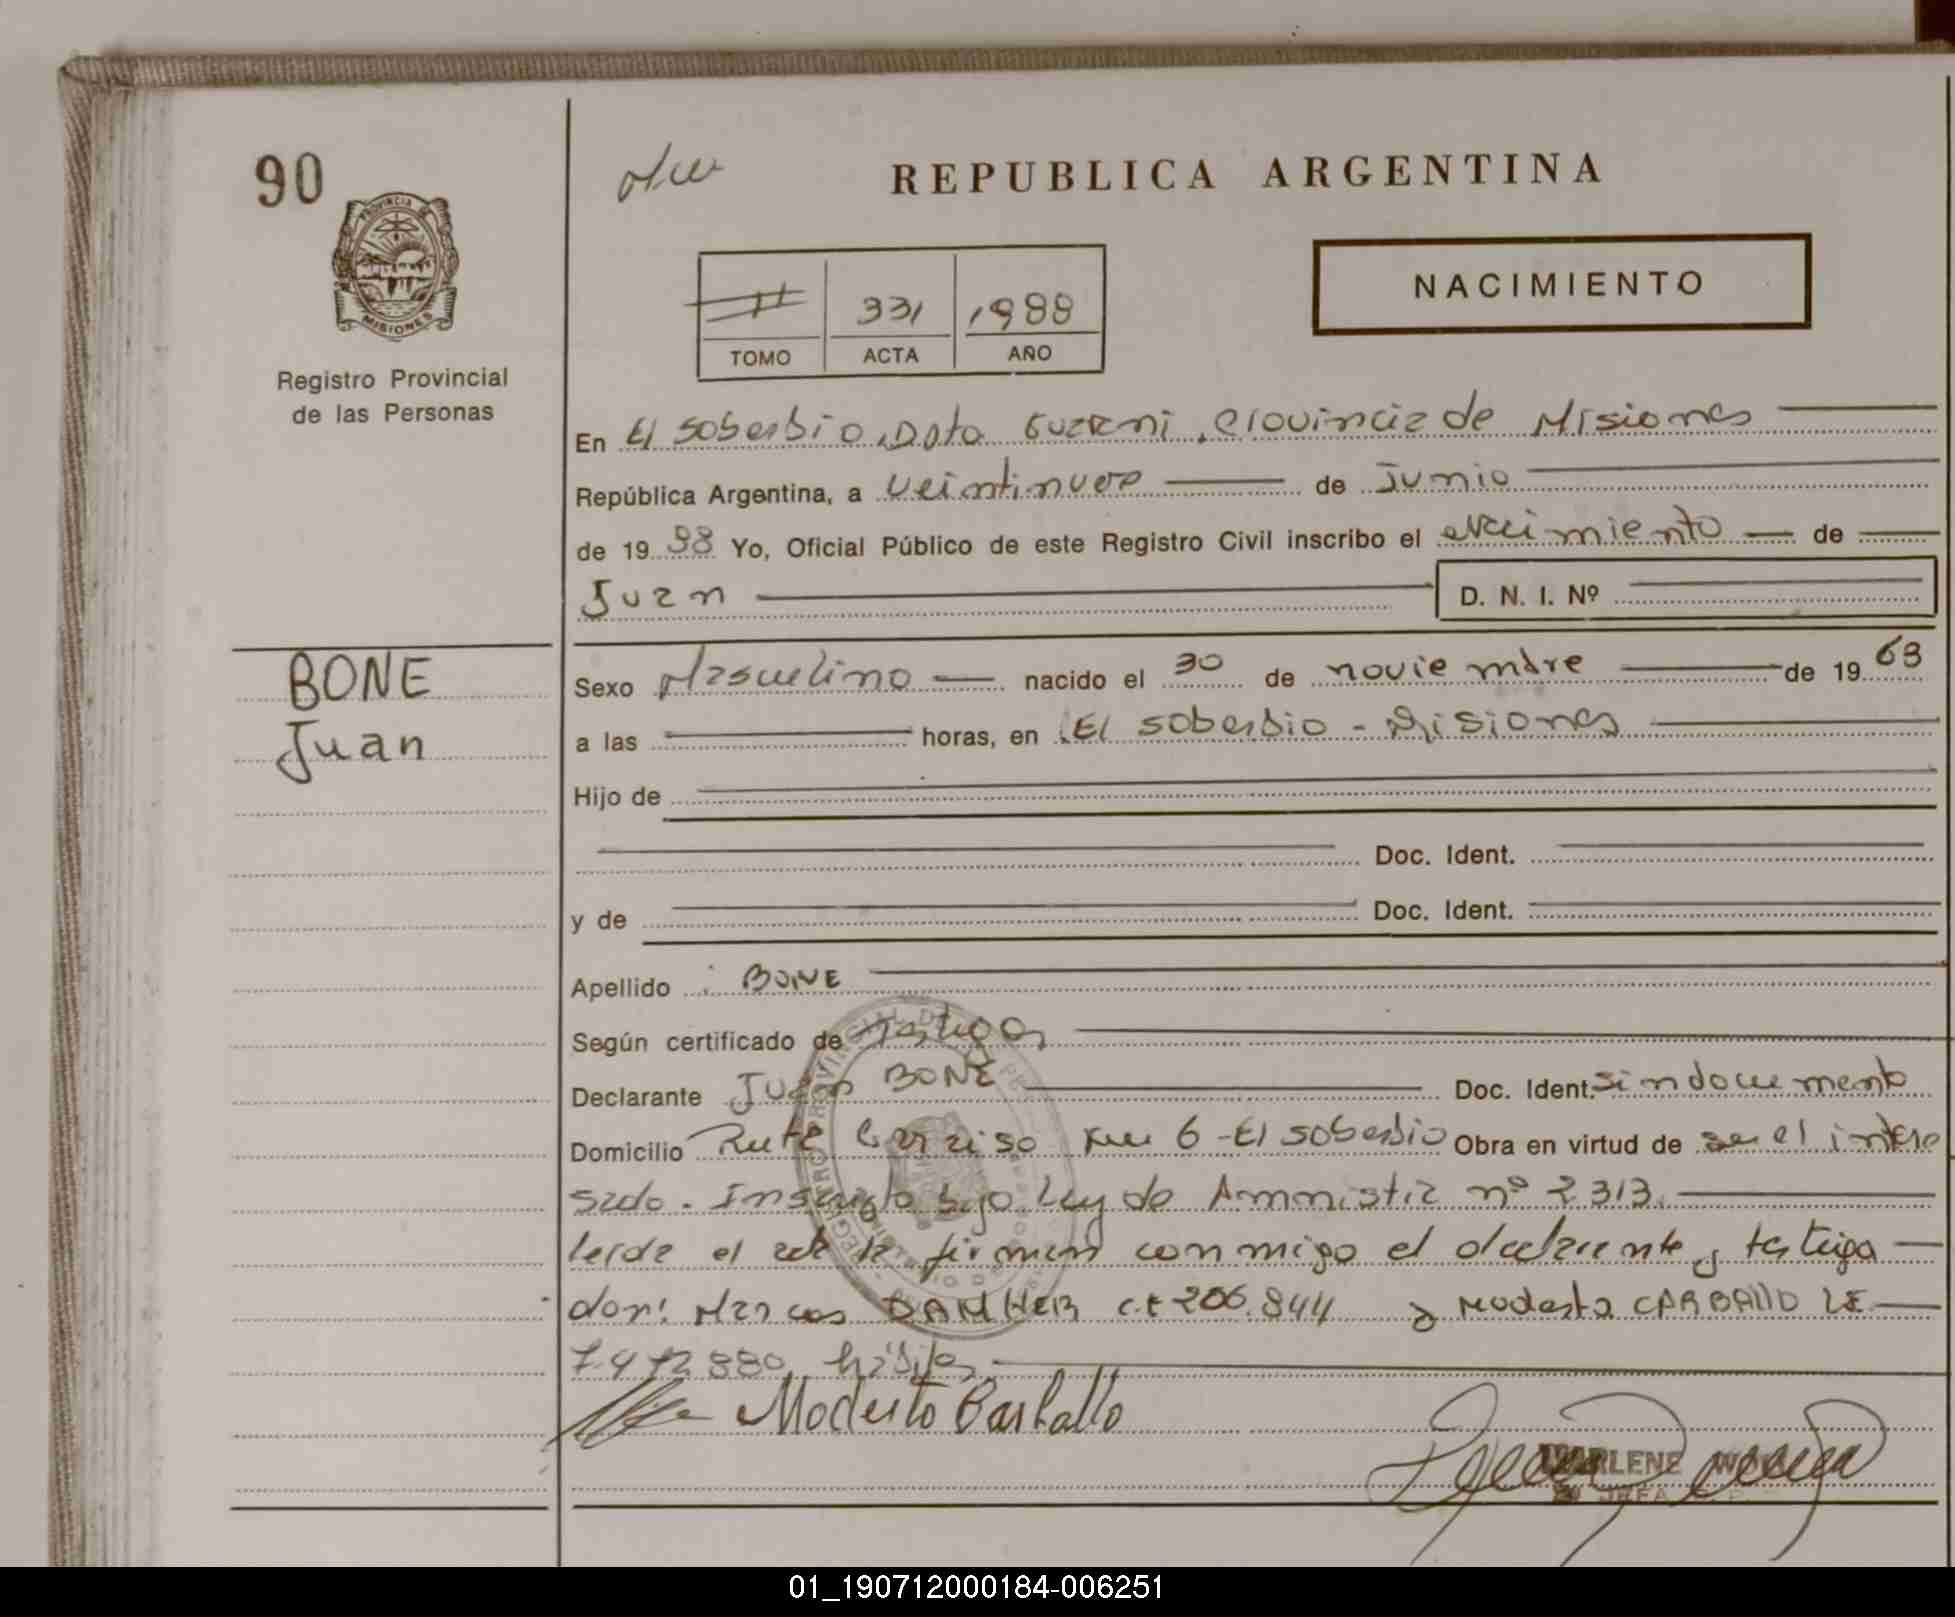 90
REPUBLICA ARGENTINA
PROVINCIA DE
MISIONES
NACIMIENTO
331 1988
TOMO ACTA AÑO
Registro Provincial
de las Personas
En El Soberbio, Dpto Guarani, Provincia de Misiones
República Argentina, a veintinueve de Junio
de 1988 Yo, Oficial Público de este Registro Civil inscribo el nacimiento de
Juan D. N. I. Nº
BONE
Juan
Sexo Masculino nacido el 30 de noviembre de 1963
a las horas, en El Soberbio - Misiones
Hijo de
Doc. Ident.
y de Doc. Ident.
Apellido : BONE
Según certificado de testigos
Declarante Juan BONE Doc. Ident. sin documento
Domicilio Ruta Km 6 - El Soberbio Obra en virtud de ser el intere
sado. Inscripto bajo Ley de Amnistia nº 2313.
leida el acta la firman conmigo el declarante y testigos
don: Marcos C.I 206.844 y Modesto CARBALLO LE
7.472.880, hábiles
Modesto Carballo
MARLENE
JEFA
01_190712000184-006251